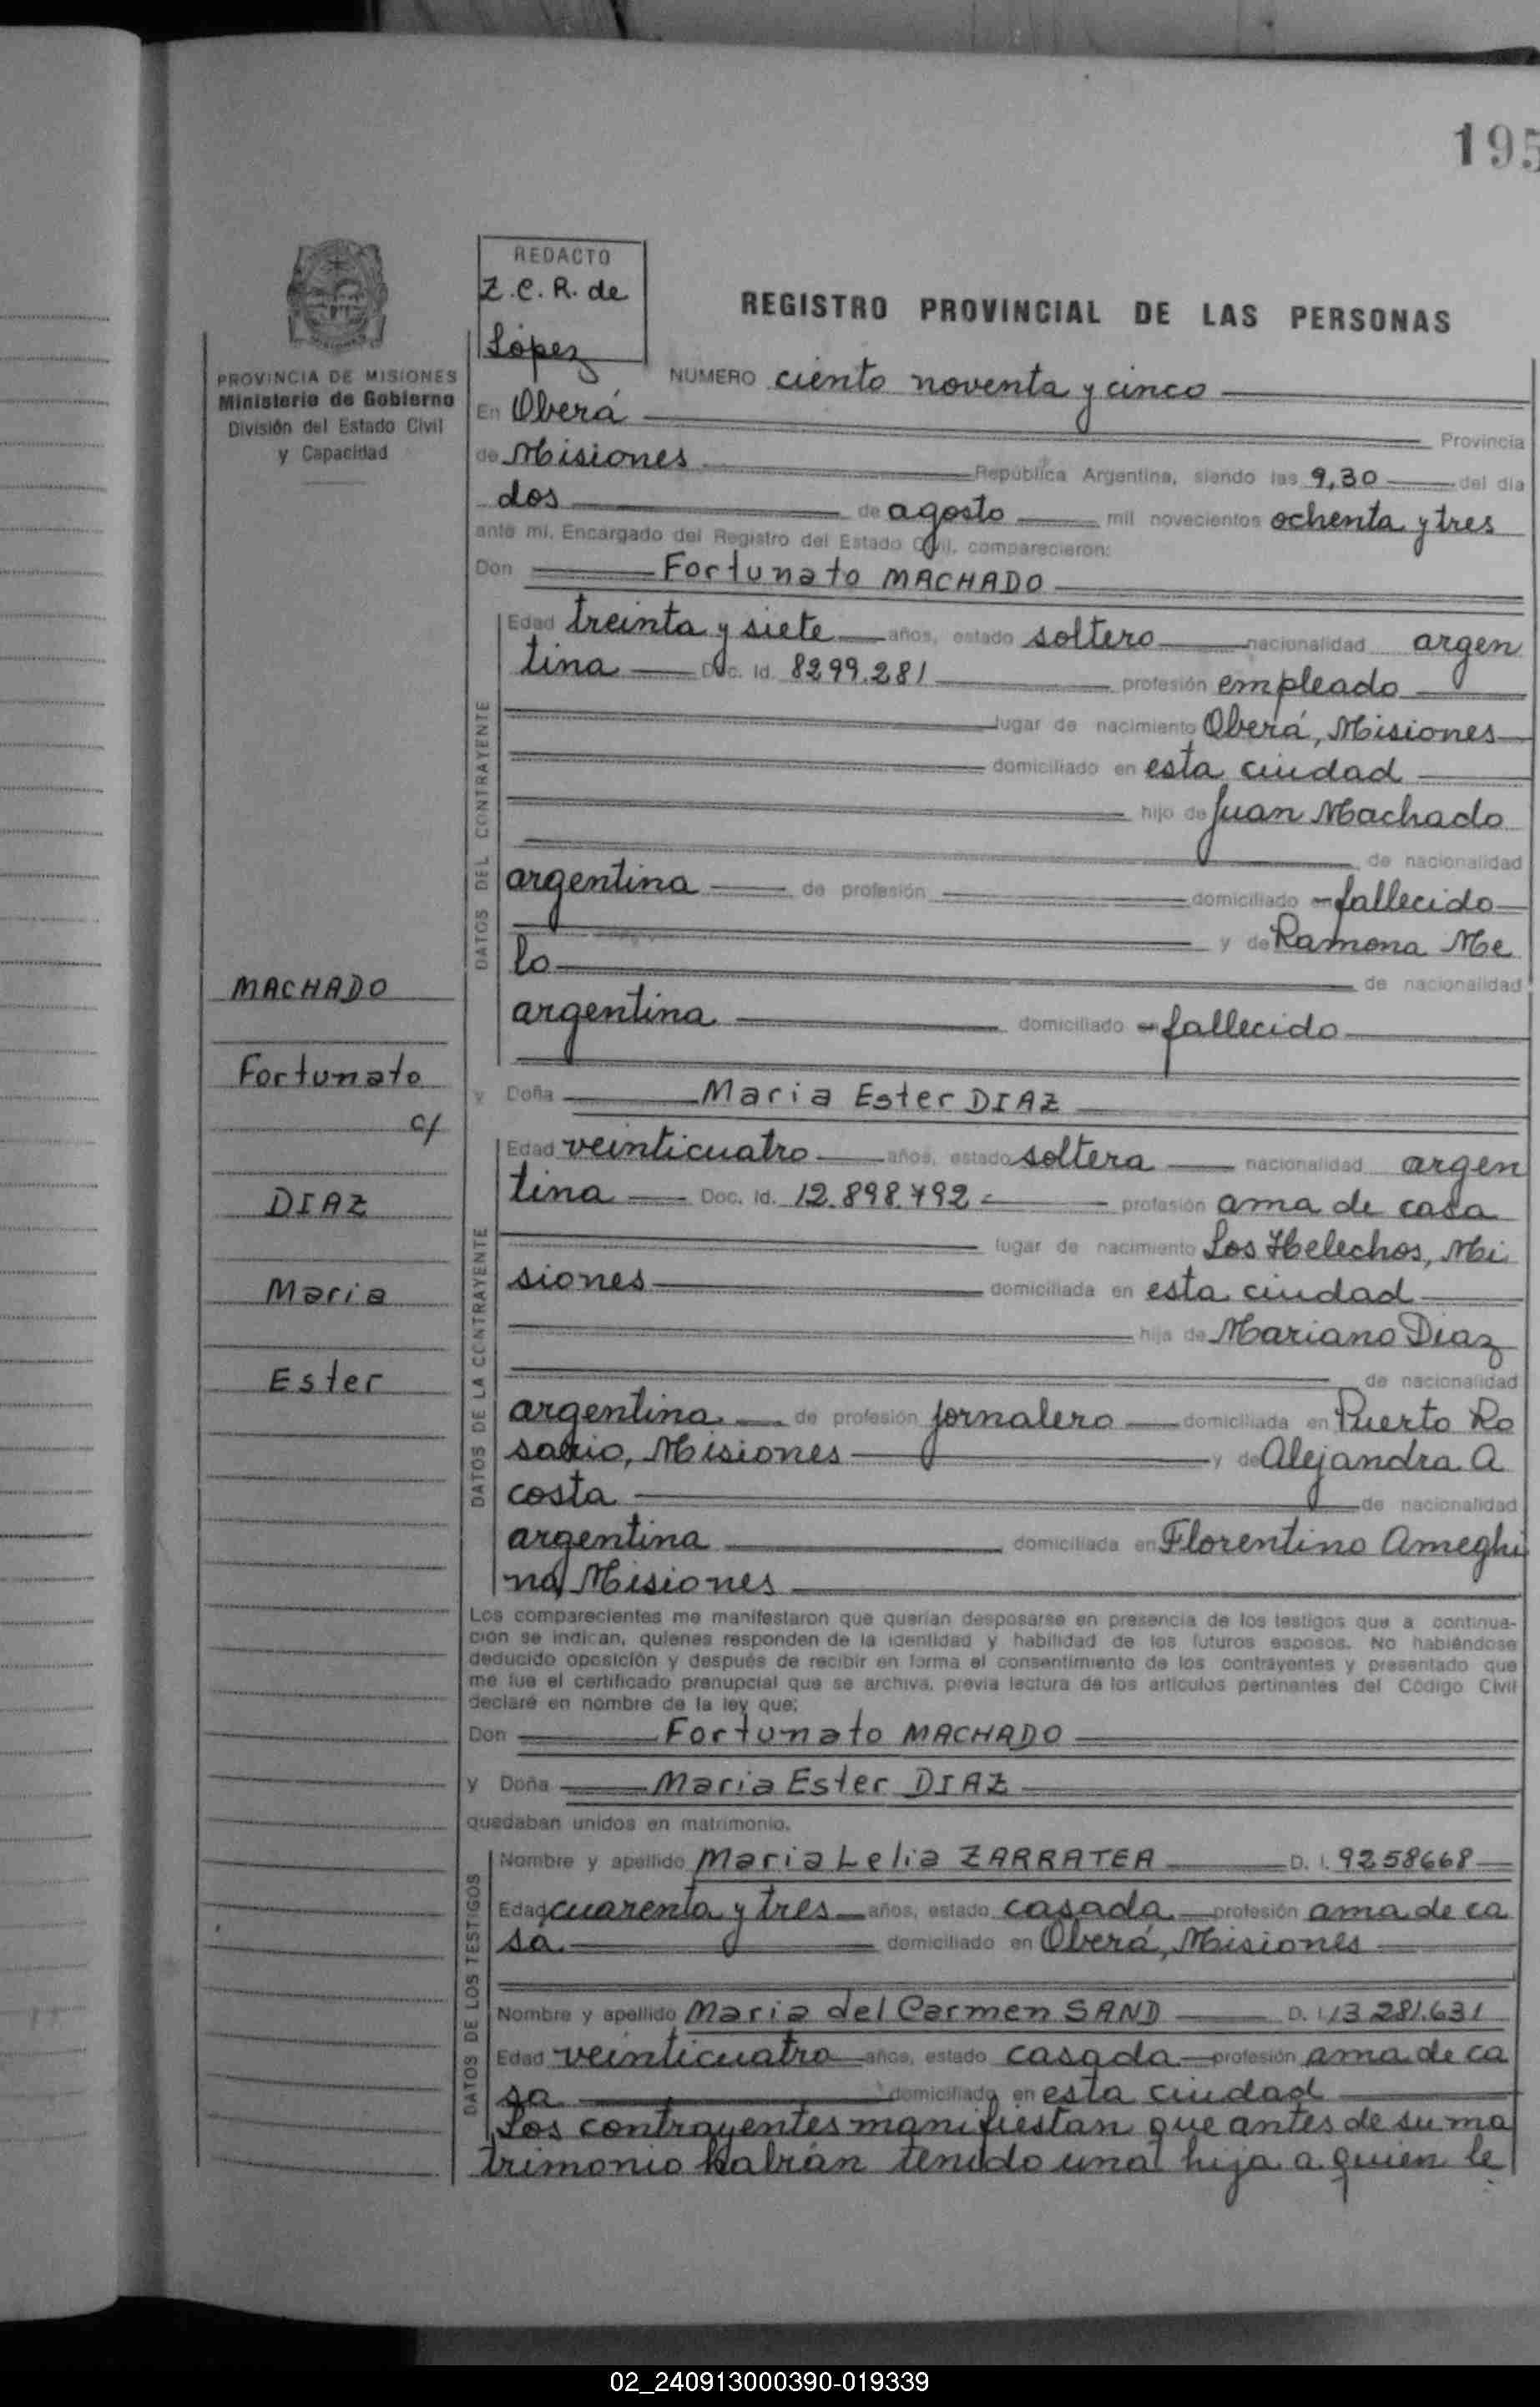 195
REDACTO
Z.C.R. de
López
REGISTRO PROVINCIAL DE LAS PERSONAS
PROVINCIA DE MISIONES
Ministerio de Gobierno
División del Estado Civil
y Capacidad
NUMERO ciento noventa y cinco
En Oberá Provincia
de Misiones República Argentina, siendo las 9,30 del día
dos de agosto mil novecientos ochenta y tres
ante mi, Encargado del Registro del Estado Civil, comparecieron:
Don Fortunato MACHADO
DATOS DEL CONTRAYENTE
Edad treinta y siete años, estado soltero nacionalidad argen
tina Doc. Id. 8299.281 profesión empleado
lugar de nacimiento Oberá, Misiones
domiciliado en esta ciudad
hijo de Juan Machado
de nacionalidad
argentina de profesión domiciliado en fallecido
y de Ramona Me
lo de nacionalidad
argentina domiciliado en fallecido
MACHADO
Fortunato
c/
DIAZ
Maria
Ester
y Doña Maria Ester DIAZ
DATOS DE LA CONTRAYENTE
Edad veinticuatro años, estado soltera nacionalidad argen
tina Doc. Id. 12.898.792 profesión ama de casa
lugar de nacimiento Los Helechos, Mi
siones domiciliada en esta ciudad
hija de Mariano Diaz
de nacionalidad
argentina de profesión jornalero domiciliada en Puerto Ro
sario, Misiones y de Alejandra A
costa de nacionalidad
argentina domiciliada en Florentino Ameghi
no, Misiones
Los comparecientes me manifestaron que querían desposarse en presencia de los testigos que a continua-
ción se indican, quienes responden de la identidad y habilidad de los futuros esposos. No habiéndose
deducido oposición y después de recibir en forma el consentimiento de los contrayentes y presentado que
me fue el certificado prenupcial que se archiva, previa lectura de los artículos pertinentes del Código Civil
declaré en nombre de la ley que:
Don Fortunato MACHADO
y Doña Maria Ester DIAZ
quedaban unidos en matrimonio.
DATOS DE LOS TESTIGOS
Nombre y apellido Maria Lelia ZARRATEA D. I. 9258668
Edad cuarenta y tres años, estado casada profesión ama de ca
sa domiciliado en Oberá, Misiones
Nombre y apellido Maria del Carmen SAND D. I. 13281.631
Edad veinticuatro años, estado casada profesión ama de ca
sa domiciliado en esta ciudad
Los contrayentes manifiestan que antes de su ma
trimonio habián tenido una hija a quien le
02_240913000390-019339